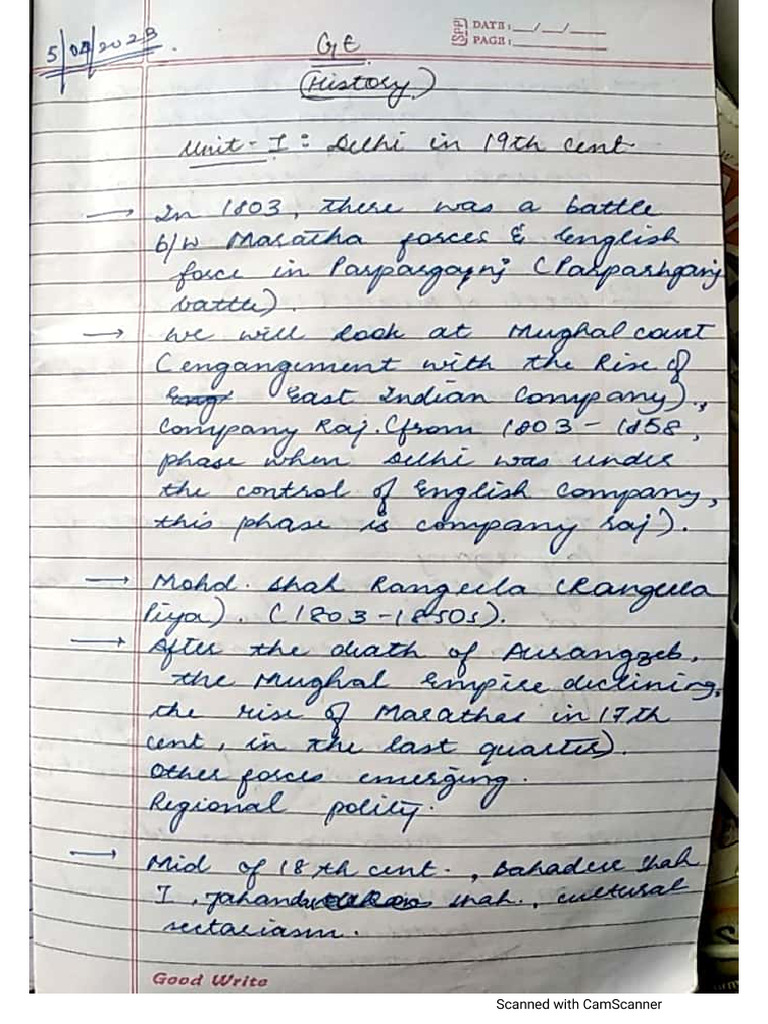 DATE: __/__/____
5/09/2023.
PAGE: ________
GE
(History)
Unit-I: Delhi in 19th cent
→ In 1803, there was a battle
b/w Maratha forces & English
force in Parpargajnj (Parparhganj
battle).
→ We will look at Mughal court
(engangement with the Rise of
East Indian Company).,
Company Raj. (from 1803 - 1858,
phase when Delhi was under
the control of English Company,
this phase is company raj).
→ Mohd. Shah Rangeela (Rangeela
Piya). (1803-1850s).
→ After the death of Aurangzeb,
the Mughal Empire declining,
the rise of Marathas in 17th
cent, in the last quarter).
Other forces emerging.
Regional polity.
→ Mid of 18th cent., Bahadur Shah
I, Jahandar shah., cultural
sectariasm.
Good Write
Scanned with CamScanner